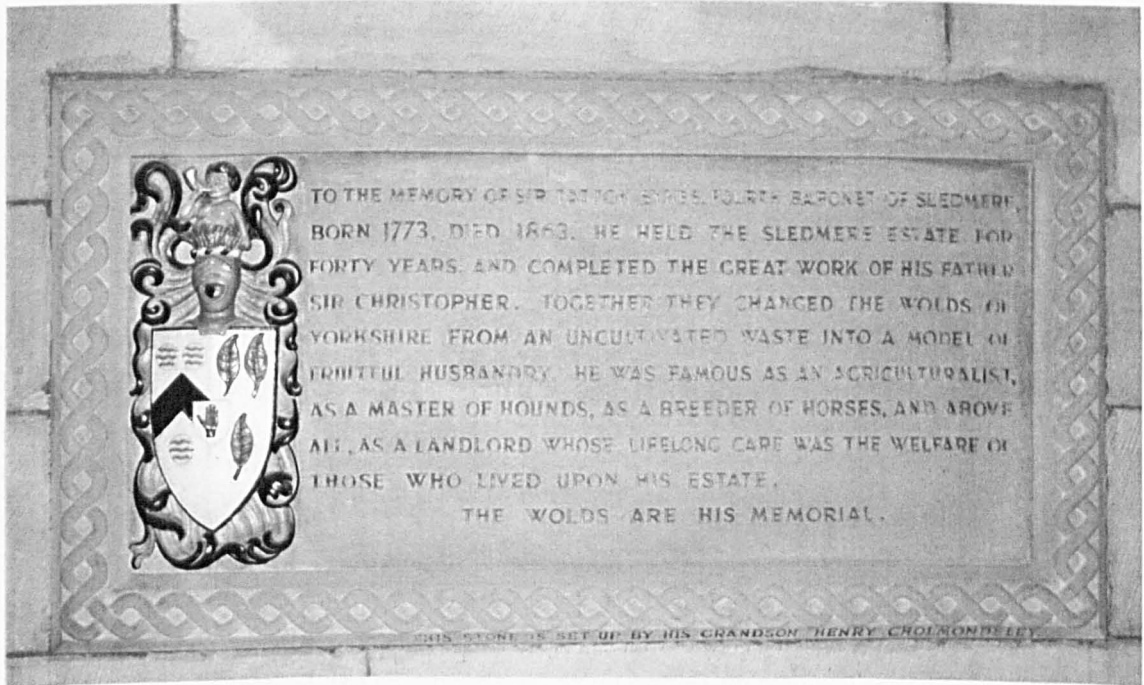 TO THE MEMORY OF SIR TATTON SYKES, FOURTH BARONET OF SLEDMERE,
BORN 1773, DIED 1863. HE HELD THE SLEDMERE ESTATE FOR
FORTY YEARS, AND COMPLETED THE GREAT WORK OF HIS FATHER
SIR CHRISTOPHER. TOGETHER THEY CHANGED THE WOLDS OF
YORKSHIRE FROM AN UNCULTIVATED WASTE INTO A MODEL OF
FRUITFUL HUSBANDRY. HE WAS FAMOUS AS AN AGRICULTURALIST,
AS A MASTER OF HOUNDS, AS A BREEDER OF HORSES, AND ABOVE
ALL, AS A LANDLORD WHOSE LIFELONG CARE WAS THE WELFARE OF
THOSE WHO LIVED UPON HIS ESTATE.
THE WOLDS ARE HIS MEMORIAL.
THIS STONE IS SET UP BY HIS GRANDSON HENRY CHOLMONDELEY